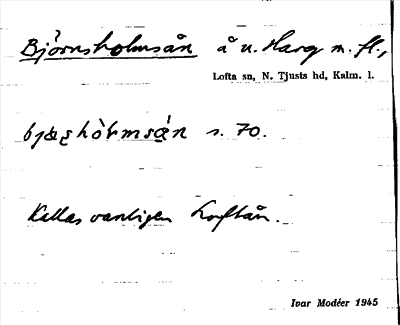 Björnsholmsån å u. Harg m. fl.,
Lofta sn, N. Tjusts hd, Kalm. l.
s. 70.
Kallas vanligen Loftaån.
Ivar Modéer 1945